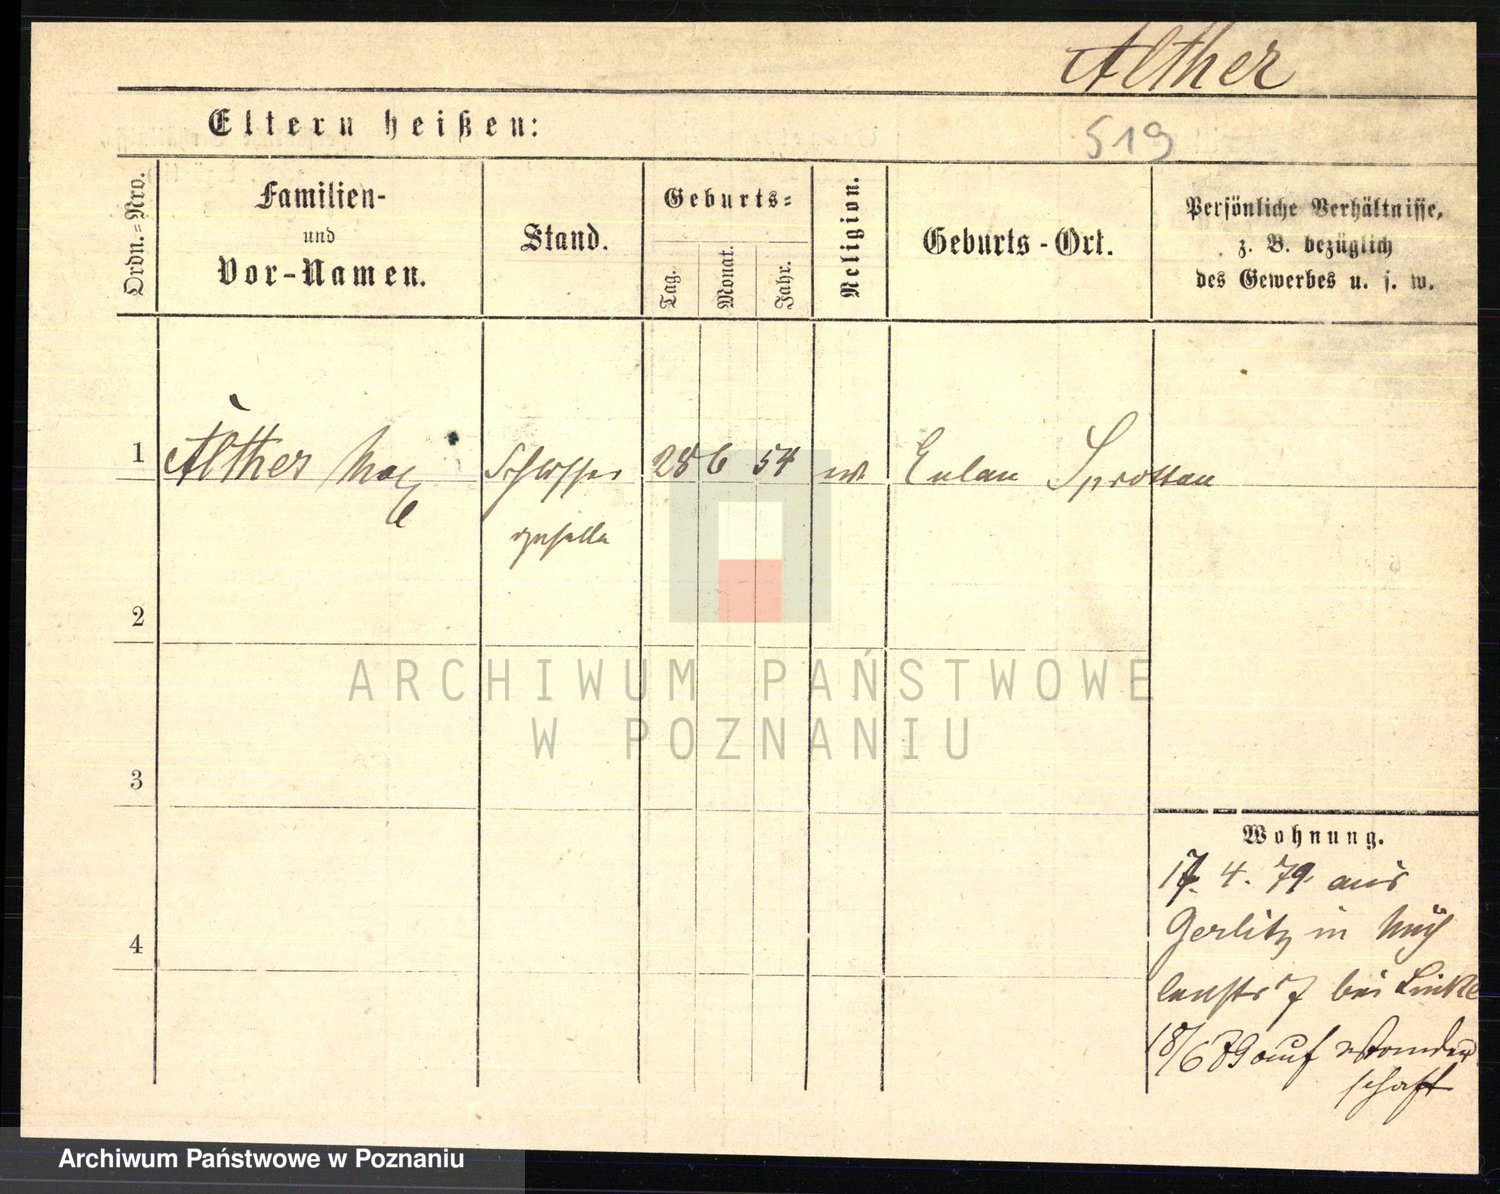 Alther
Eltern heißen:
519
Ordn.=Nro.
Familien-
und
Vor-Namen.
Stand.
Geburts=
Tag.
Monat.
Jahr.
Religion.
Geburts-Ort.
Persönliche Verhältnisse,
z. B. bezüglich
des Gewerbes u. s. w.
1 Alther Max Schlosser 28 6 54 ev Eulau Sprottau
geselle
2
3
4
Wohnung.
17. 4. 79. aus
Gerlitz in Müh
lenstr 7 bei Linke
18/6 79 auf Wander
schaft
ARCHIWUM PAŃSTWOWE
W POZNANIU
Archiwum Państwowe w Poznaniu